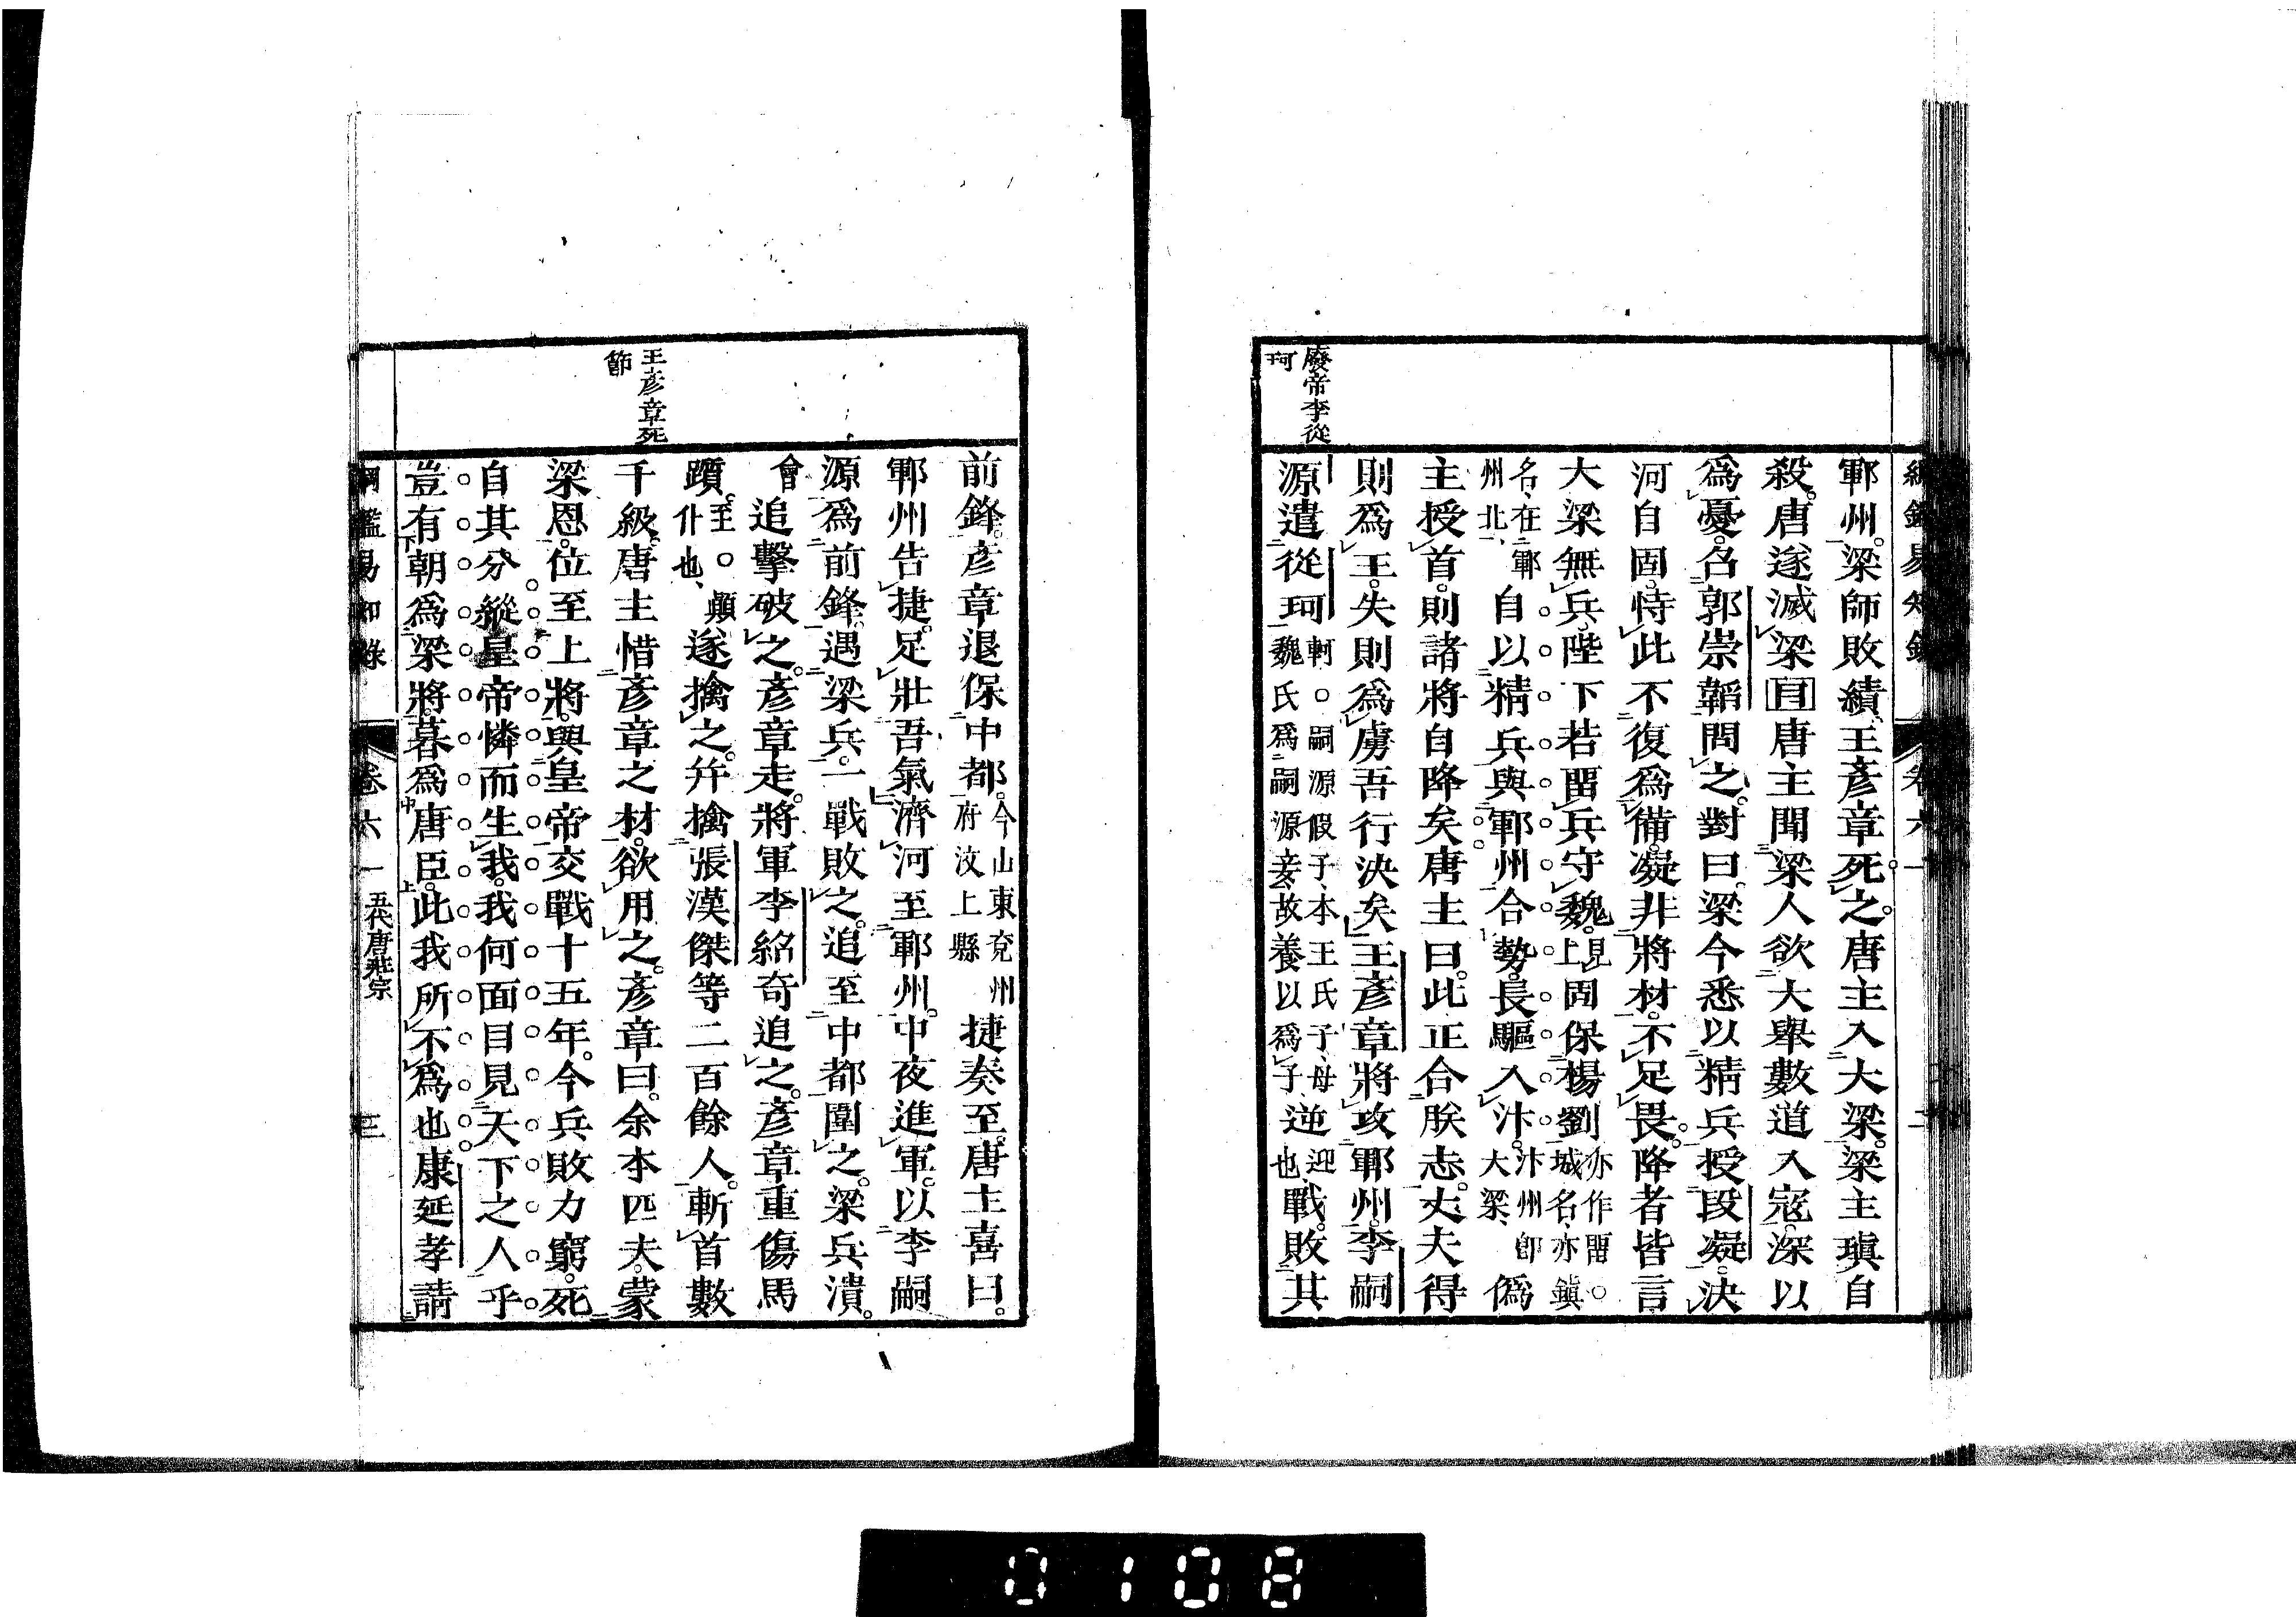 綱鑑易知錄
卷六一
廢帝李從
珂
鄆州。梁師敗績、王彥章死之。唐主入大梁。梁主瑱自
殺。唐遂滅梁目唐主聞梁人欲大舉數道入寇。深以
爲憂。召郭崇韜問之。對曰。梁今悉以精兵授段凝。決
河自固。恃此不復爲備。凝非將材。不足畏。降者皆言
大梁無兵。陛下若留兵守魏。見上固保楊劉亦作留。城名、亦鎭
名、在鄆州北、自以精兵與鄆州合勢。長驅入汴。汴州卽大梁、僞
主授首。則諸將自降矣。唐主曰。此正合朕志。丈夫得
則爲王。失則爲虜。吾行決矣。王彥章將攻鄆州。李嗣
源遣從珂軻。嗣源假子、本王氏子、母魏氏爲嗣源妾、故養以爲子逆迎也、戰。敗其
王彥章死
節
前鋒。彥章退保中都。今山東兗州府汶上縣捷奏至。唐主喜曰。
鄆州告捷。足壯吾氣。濟河至鄆州。中夜進軍。以李嗣
源爲前鋒。遇梁兵。一戰敗之。追至中都。圍之。梁兵潰。
會追擊破之。彥章走。將軍李紹奇追之。彥章重傷馬
躓。至。顚仆也、遂擒之。幷擒張漢傑等二百餘人。斬首數
千級。唐主惜彥章之材。欲用之。彥章曰。余本匹夫。蒙
梁恩。位至上將。與皇帝交戰十五年。今兵敗力窮。死
自其分。縱皇帝憐而生我。我何面目見天下之人乎
豈有朝爲梁將。暮爲唐臣。此我所不爲也康延孝請
綱鑑易知錄
卷六一
五代唐莊宗
三
0108